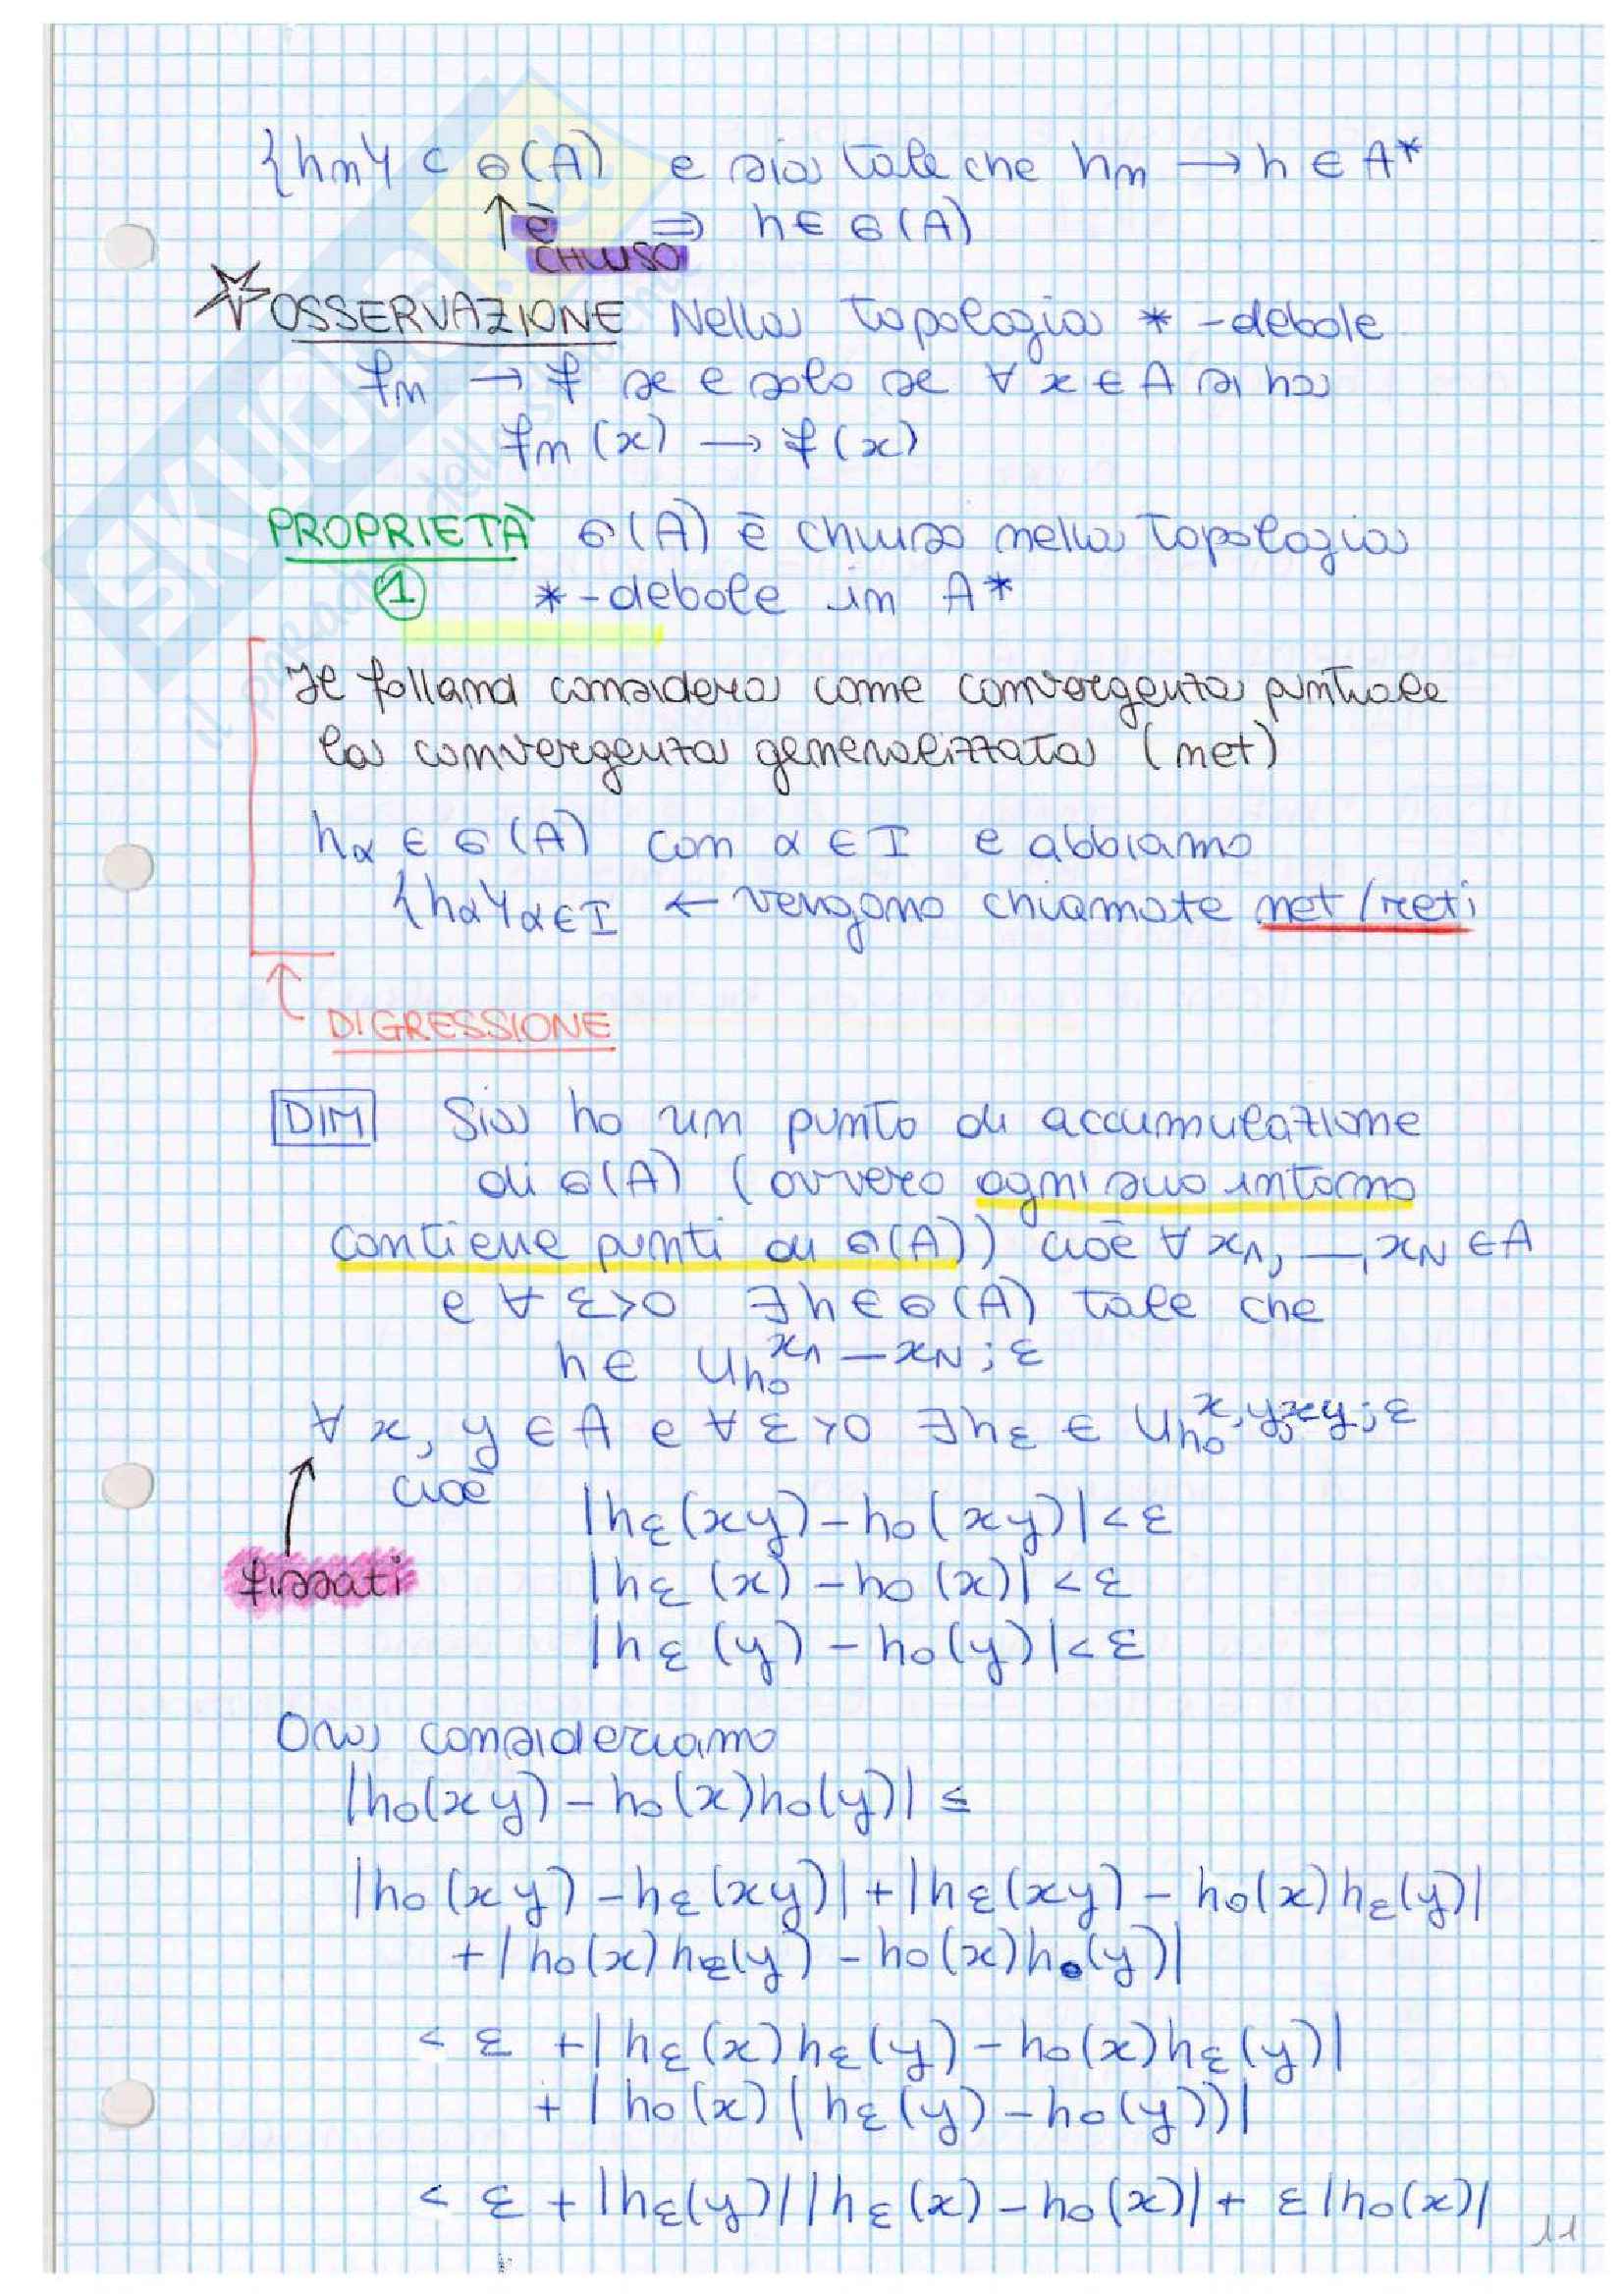 {hn} ⊂ σ(A) e sia tale che hn → h ∈ A*
↑ è CHIUSO ⇒ h ∈ σ(A)
☆ OSSERVAZIONE Nella topologia *-debole
fn → f se e solo se ∀ x ∈ A si ha
fn(x) → f(x)
PROPRIETÀ σ(A) è chiuso nella topologia
① *-debole in A*
Il folland considera come convergenza puntuale
la convergenza generalizzata (net)
hα ∈ σ(A) con α ∈ I e abbiamo
{hα}α∈I ← vengono chiamate net/reti
DIGRESSIONE
DIM Sia h0 un punto di accumulazione
di σ(A) (ovvero ogni suo intorno
contiene punti di σ(A)) cioè ∀ x1, —, xN ∈ A
e ∀ ε>0 ∃ h ∈ σ(A) tale che
h ∈ U_{h0}^{x1 — xN; ε}
∀ x, y ∈ A e ∀ ε>0 ∃ hε ∈ U_{h0}^{x, y, xy; ε}
cioè |hε(xy) - h0(xy)| < ε
fissati |hε(x) - h0(x)| < ε
|hε(y) - h0(y)| < ε
Ora consideriamo
|h0(xy) - h0(x)h0(y)| ≤
|h0(xy) - hε(xy)| + |hε(xy) - h0(x)hε(y)|
+ |h0(x)hε(y) - h0(x)h0(y)|
< ε + |hε(x)hε(y) - h0(x)hε(y)|
+ |h0(x)(hε(y) - h0(y))|
< ε + |hε(y)||hε(x) - h0(x)| + ε|h0(x)|
11